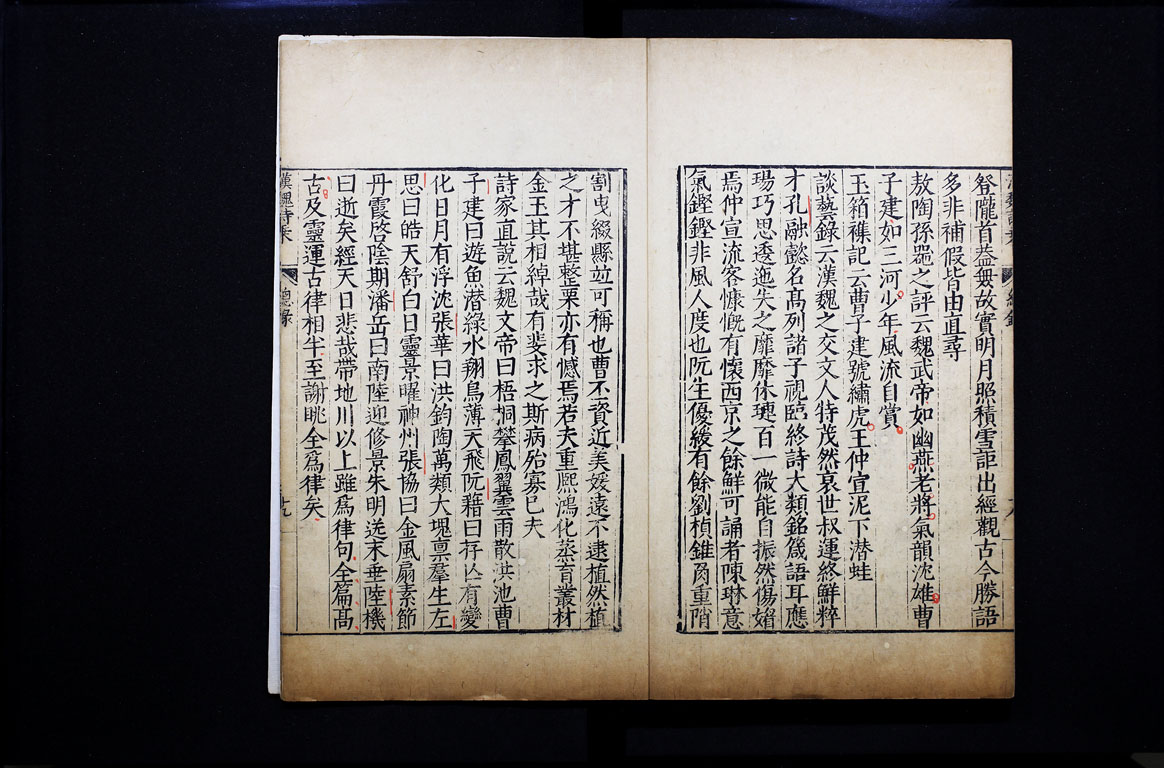 登隴首葢無故實明月照積雪詎出經觀古今勝語
多非補假皆由直尋
敖陶孫噐之評云魏武帝如幽燕老將氣韻沈雄曹
子建如三河少年風流自賞
玉箱襍記云曹子建號繡虎王仲宣泥下潜蛙
談藝錄云漢魏之交文人特茂然衰世叔運終鮮粹
才孔融懿名髙列諸子視臨終詩大類銘箴語耳應
瑒巧思逶迤失之靡靡休璉百一微能自振然傷媚
焉仲宣流客慷慨有懷西京之餘鮮可誦者陳琳意
氣鏗鏗非風人度也阮生優緩有餘劉楨錐角重陗
割曳綴縣竝可稱也曹丕資近美媛遠不逮植然植
之才不堪整栗亦有憾焉若夫重熙鴻化蒸育叢材
金玉其相綽哉有斐求之斯病殆寡已夫
詩家直說云魏文帝曰梧桐攀鳳翼雲雨散洪池曹
子建曰遊魚潜綠水翔鳥薄天飛阮藉曰存亾有變
化日月有浮沈張華曰洪鈞陶萬類大塊禀羣生左
思曰皓天舒白日靈景曜神州張協曰金風扇素節
丹霞啓陰期潘岳曰南陸迎修景朱明送末垂陸機
曰逝矣經天日悲哉帶地川以上雖爲律句全篇髙
古及靈運古律相半至謝眺全爲律矣
漢魏詩乘
總錄
十九